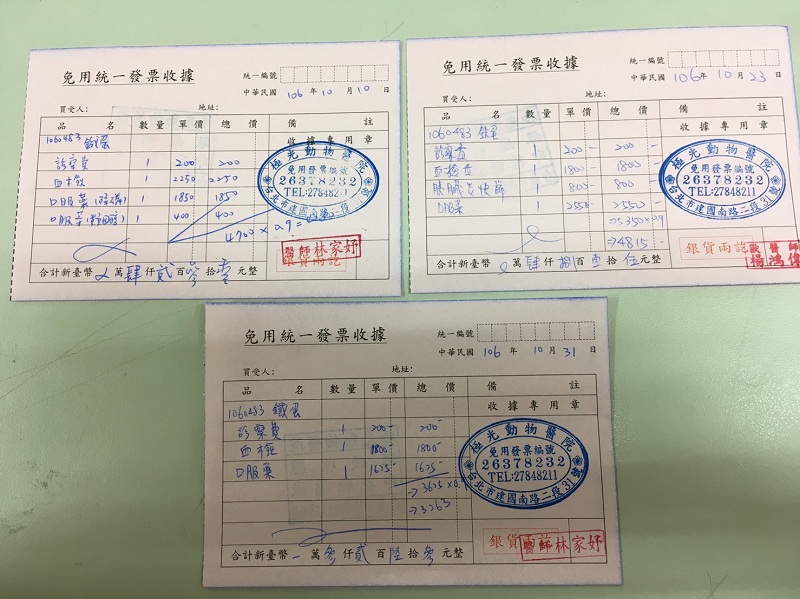 免用統一發票收據
統一編號
中華民國 106 年 10 月 10 日
買受人： 地址：
品 名 數 量 單 價 總 價 備 註
收據專用章
1060483 鐵蛋
診察費 1 200 200
血檢 1 2250 2250
口服藥 1 1850 1850
口服藥 1 400 400
4700 × 0.9 =
極光動物醫院
免用發票編號
26378232
TEL:27848211
台北市建國南路二段31號
銀貨兩訖
醫師林家妤
合計新臺幣 萬 肆 仟 貳 百 參 拾 零 元整
免用統一發票收據
統一編號
中華民國 106 年 10 月 23 日
買受人： 地址：
品 名 數 量 單 價 總 價 備 註
收據專用章
1060483 鐵蛋
診察費 1 200- 200-
血檢費 1 1800- 1800-
1 800- 800
口服藥 1 2550- 2550-
→5350×0.9
→4815-
極光動物醫院
免用發票編號
26378232
TEL:27848211
台北市建國南路二段31號
銀貨兩訖
獸醫師
楊鴻偉
合計新臺幣 萬 肆 仟 捌 百 壹 拾 伍 元整
免用統一發票收據
統一編號
中華民國 106 年 10 月 31 日
買受人： 地址：
品 名 數 量 單 價 總 價 備 註
收據專用章
1060483 鐵蛋
診察費 1 200- 200-
血檢 1 1800- 1800-
口服藥 1 1625- 1625-
→3625×0.9
→3263
極光動物醫院
免用發票編號
26378232
TEL:27848211
台北市建國南路二段31號
銀貨兩訖
醫師林家妤
合計新臺幣 萬 參 仟 貳 百 陸 拾 參 元整